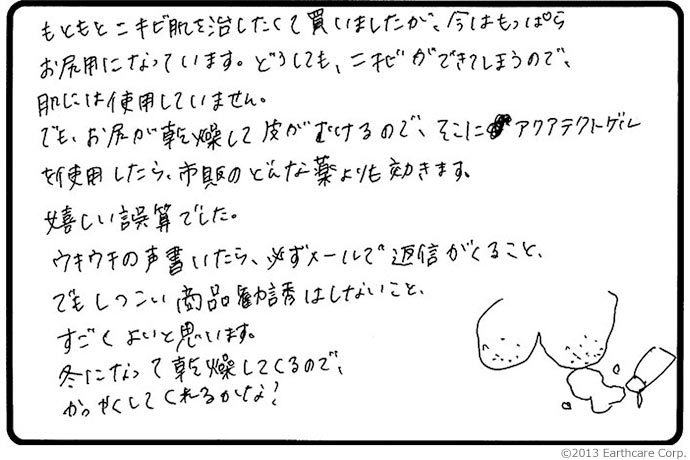 もともとニキビ肌を治したくて買いましたが、今はもっぱら
お尻用になっています。どうしても、ニキビができてしまうので、
肌には使用していません。
でも、お尻が乾燥して皮がむけるので、そこにアクアテクトゲル
を使用したら、市販のどんな薬よりも効きます。
嬉しい誤算でした。
ウキウキの声書いたら、必ずメールで返信がくること、
でもしつこい商品勧誘はしないこと、
すごくよいと思います。
冬になって乾燥してくるので、
かつやくしてくれるかな?
©2013 Earthcare Corp.